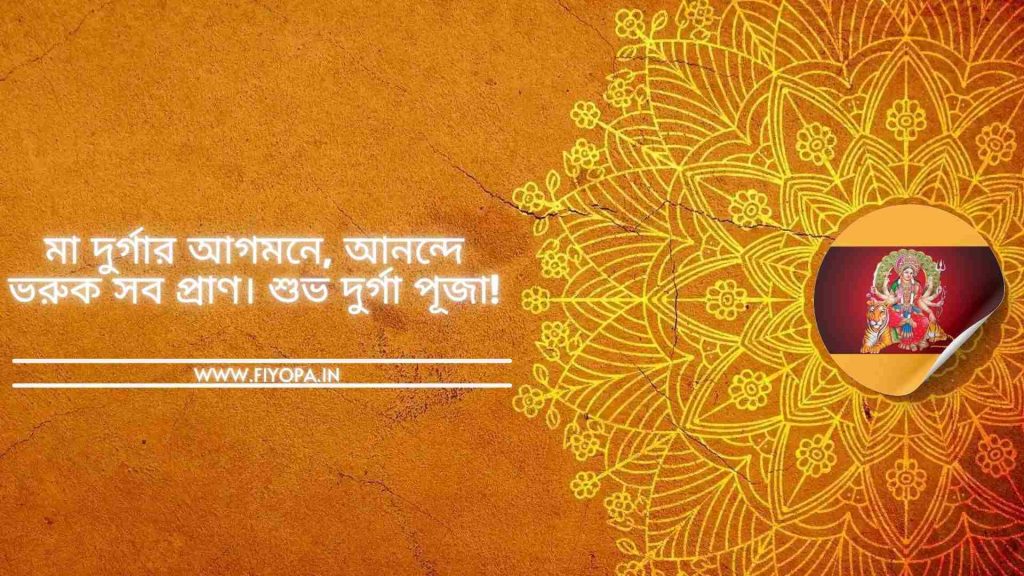 মা দুর্গার আগমনে, আনন্দে
ভরুক সব প্রাণ। শুভ দুর্গা পূজা!
WWW.FIYOPA.IN